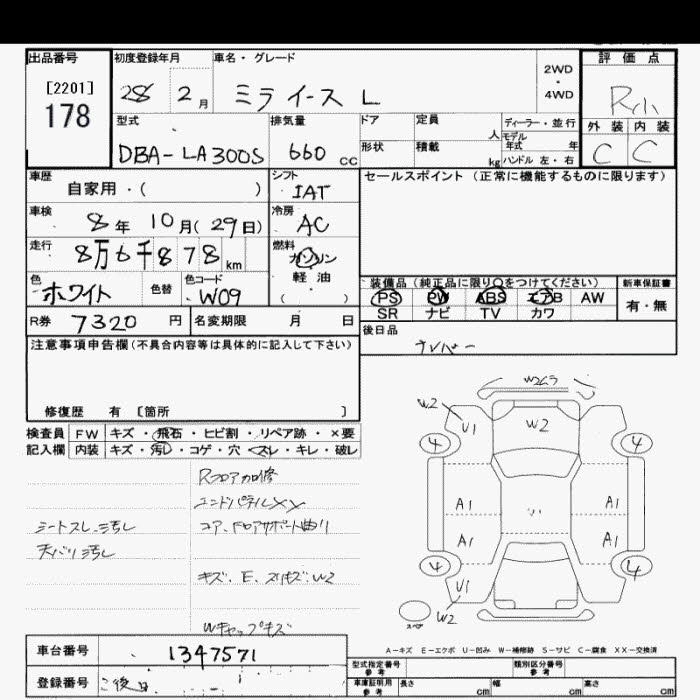 出品番号 初度登録年月 車名・グレード 2WD・4WD 評価点
[2201]
178
28 2月 ミライース L R小
型式 排気量 ドア 定員 人 ディーラー・並行 外装 内装
モデル年式 年
DBA-LA300S 660 cc 形状 積載 kg ハンドル 左・右 C C
車歴 シフト セールスポイント (正常に機能するものに限ります)
自家用・( ) IAT
車検 冷房
8年 10月(29日) AC
走行 燃料
8万6千878km ガソリン
軽・油
( )
色 色替 色コード 装備品(純正品に限り○をつけてください) 新車保証書
ホワイト W09 PS PW ABS エアB AW 有・無
SR ナビ TV カワ
R券 7320円 名変期限 月 日 後日品
注意事項申告欄(不具合内容等は具体的に記入して下さい)
修復歴 有 [箇所 ]
検査員 FW キズ・飛石・ヒビ割・リペア跡・×要
記入欄 内装 キズ・汚れ・コゲ・穴・スレ・キレ・破レ
Rフロア加修
エンドパネルXX
シートスレ、汚レ コア、ドロアサポート曲り
天バリ汚レ
キズ、E、スリキズ、W2
Wキャップキズ
W2
W2 U1 W2
4 4
A1 U1 A1
A1 A1
4 4
U1
W2
スペア
A-キズ E-エクボ U-凹み W-補修跡 S-サビ C-腐食 XX-交換済
車台番号 1347571 型式指定番号 参考 類別区分番号 参考
登録番号 後日 車庫証明用 参考 長さ cm 幅 cm 高さ cm